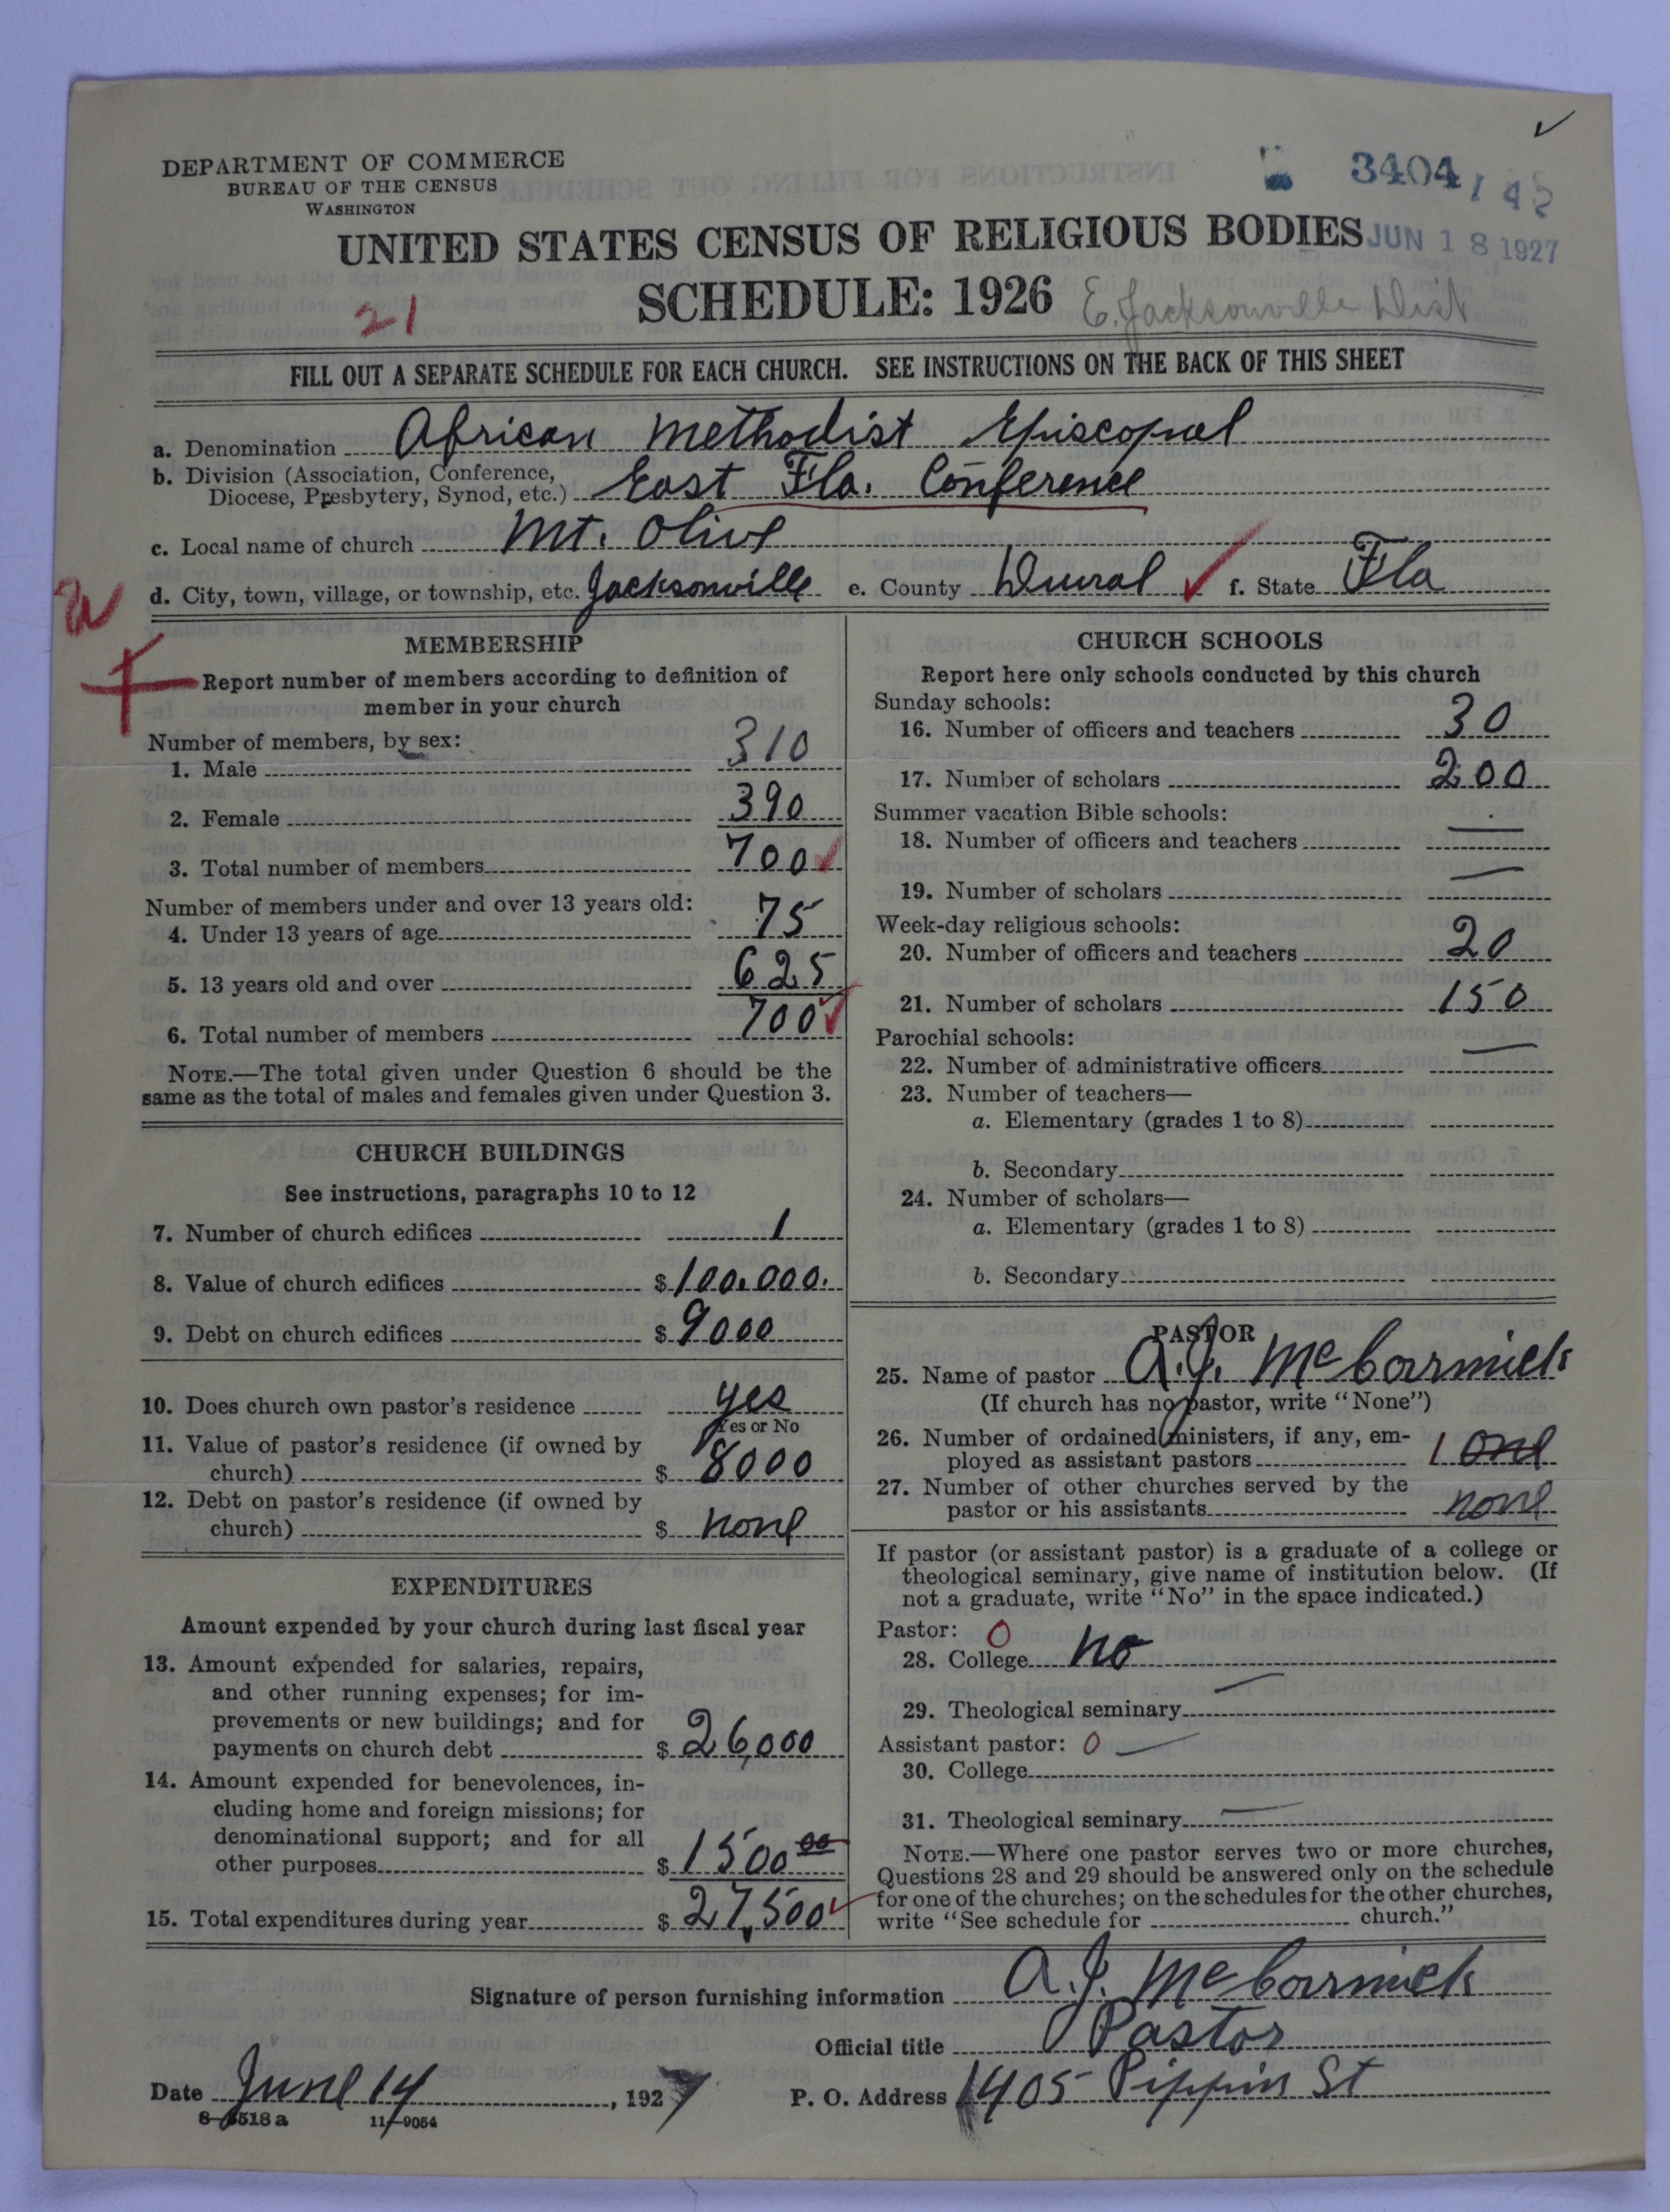 DEPARTMENT OF COMMERCE
BUREAU OF THE CENSUS
WASHINGTON
3404
UNITED STATES CENSUS OF RELIGIOUS BODIES
JUN 18 1927
SCHEDULE: 1926
E. Jacksonville Dist
21
FILL OUT A SEPARATE SCHEDULE FOR EACH CHURCH. SEE INSTRUCTIONS ON THE BACK OF THIS SHEET
a. Denomination African Methodist Episcopal
b. Division (Association, Conference,
Diocese, Presbytery, Synod, etc.) East Fla. Conference
c. Local name of church Mt. Olive
d. City, town, village, or township, etc. Jacksonville e. County Duval f. State Fla
MEMBERSHIP
Report number of members according to definition of
member in your church
Number of members, by sex:
1. Male 310
2. Female 390
3. Total number of members 700
Number of members under and over 13 years old:
4. Under 13 years of age 75
5. 13 years old and over 625
6. Total number of members 700
NOTE.—The total given under Question 6 should be the
same as the total of males and females given under Question 3.
CHURCH BUILDINGS
See instructions, paragraphs 10 to 12
7. Number of church edifices 1
8. Value of church edifices $100.000.
9. Debt on church edifices $9000
10. Does church own pastor's residence yes
Yes or No
11. Value of pastor's residence (if owned by
church) $8000
12. Debt on pastor's residence (if owned by
church) $ none
EXPENDITURES
Amount expended by your church during last fiscal year
13. Amount expended for salaries, repairs,
and other running expenses; for im-
provements or new buildings; and for
payments on church debt $26,000
14. Amount expended for benevolences, in-
cluding home and foreign missions; for
denominational support; and for all
other purposes $1500 00
15. Total expenditures during year $27,500
CHURCH SCHOOLS
Report here only schools conducted by this church
Sunday schools:
16. Number of officers and teachers 30
17. Number of scholars 200
Summer vacation Bible schools:
18. Number of officers and teachers —
19. Number of scholars —
Week-day religious schools:
20. Number of officers and teachers 20
21. Number of scholars 150
Parochial schools:
22. Number of administrative officers —
23. Number of teachers—
a. Elementary (grades 1 to 8)
b. Secondary
24. Number of scholars—
a. Elementary (grades 1 to 8)
b. Secondary
PASTOR
25. Name of pastor A.J. McCormick
(If church has no pastor, write "None")
26. Number of ordained ministers, if any, em-
ployed as assistant pastors 1 one
27. Number of other churches served by the
pastor or his assistants none
If pastor (or assistant pastor) is a graduate of a college or
theological seminary, give name of institution below. (If
not a graduate, write "No" in the space indicated.)
Pastor: 0
28. College no
29. Theological seminary —
Assistant pastor: 0 —
30. College
31. Theological seminary —
NOTE.—Where one pastor serves two or more churches,
Questions 28 and 29 should be answered only on the schedule
for one of the churches; on the schedules for the other churches,
write "See schedule for church."
Signature of person furnishing information A.J. McCormick
Official title Pastor
Date June 14, 1927 P. O. Address 1405 Pippin St
8-5518a 11-9054